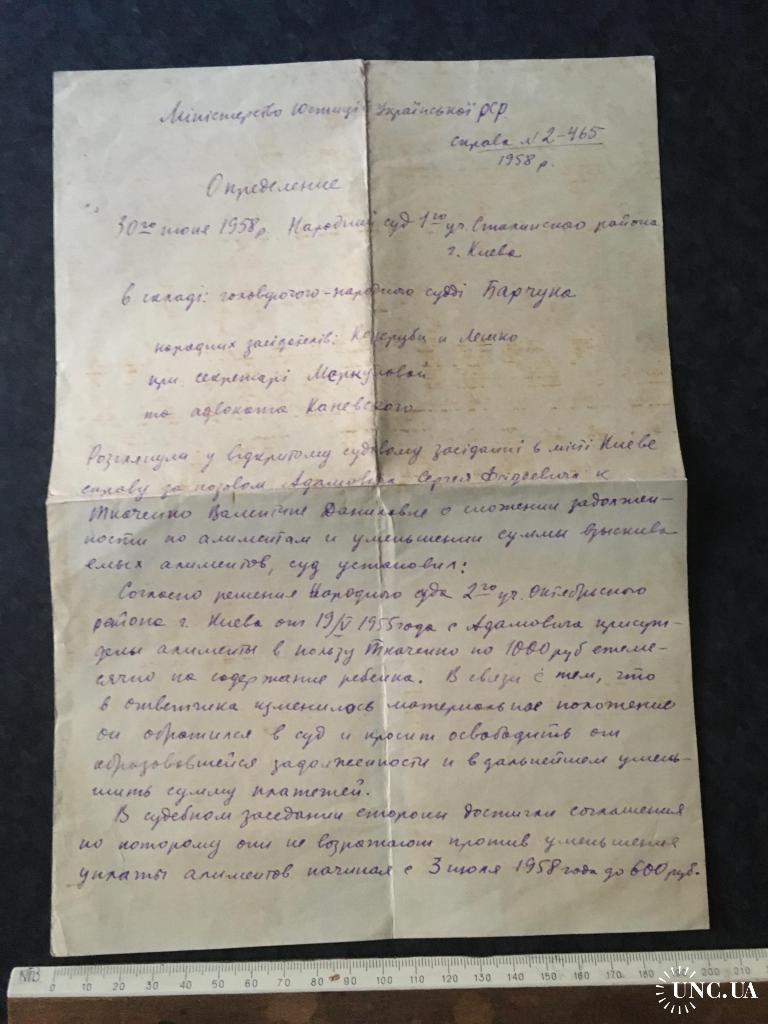 Міністерство Юстиції Української РСР
справа № 2-465
1958 р.
Определение
30го июня 1958 р. Народный суд 1го уч. Сталинского района
г. Киева
в складі: головуючого-народного судді Барчука
народних засідателів: и Лешко
при секретарі Меркуловой
та адвоката Каневского
Розглянула у відкритому судовому засіданні в місті Киеве
справу за позовом Адамовича Сергея к
Ткаченко Валентине Даниловне о сложении задолжен-
ности по алиментам и уменьшении суммы взыскива
емых алиментов, суд установил:
Согласно решения Народного суда 2го уч. Октябрьского
района г. Киева от 19/V 1955 года с Адамовича присуж-
дены алименты в пользу Ткаченко по 1000 руб ежеме-
сячно на содержание ребенка. В связи с тем, что
в ответчика изменилось материальное положение
он обратился в суд и просит освободить от
образовавшейся задолженности и в дальнейшем умень-
шить сумму платежей.
В судебном заседании стороны достигли соглашения
по которому они не возражают против уменьшения
уплаты алиментов начиная с 3 июля 1958 года до 600 руб.
0 10 20 30 40 50 60 70 80 90 100 110 120 130 140 150 160 170 180 190 200 210
UNC.UA